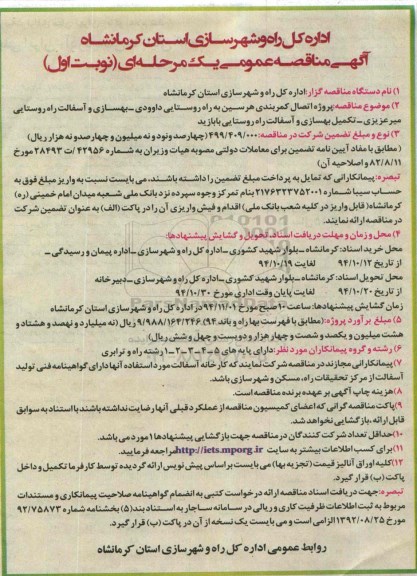 اداره کل راه و شهرسازی استان کرمانشاه
آگهی مناقصه عمومی یک مرحله‌ای (نوبت اول)
۱) نام دستگاه مناقصه گزار: اداره کل راه و شهرسازی استان کرمانشاه
۲) موضوع مناقصه: پروژه اتصال کمربندی هرسین به راه روستایی داوودی ـ بهسازی و آسفالت راه روستایی
میرعزیزی ـ تکمیل بهسازی و آسفالت راه روستایی بابازید
۳) نوع و مبلغ تضمین شرکت در مناقصه: ۴۹۹/۴۰۹/۰۰۰ (چهارصد و نود و نه میلیون و چهارصد و نه هزار ریال)
(مطابق با مفاد آیین نامه تضمین برای معاملات دولتی مصوبه هیات وزیران به شماره ۴۲۹۵۶/ت ۲۸۴۹۳ مورخ
۸۲/۸/۱۱ و اصلاحیه آن)
تبصره: پیمانکارانی که تمایل به پرداخت مبلغ تضمین را داشته باشند، می بایست نسبت به واریز مبلغ فوق به
حساب سیبا شماره ۲۱۷۶۴۴۳۷۵۲۰۰۱ بنام تمرکز وجوه سپرده نزد بانک ملی شعبه میدان امام خمینی (ره)
کرمانشاه (قابل واریز در کلیه شعب بانک ملی) اقدام و فیش واریزی آن را در پاکت (الف) به عنوان تضمین شرکت
در مناقصه ارائه نمایند.
۴) محل و زمان و مهلت دریافت اسناد، تحویل و گشایش پیشنهادها:
محل خرید اسناد: کرمانشاه ـ بلوار شهید کشوری ـ اداره کل راه و شهرسازی ـ اداره پیمان و رسیدگی ـ
از تاریخ ۹۴/۱۰/۱۲ لغایت ۹۴/۱۰/۱۹
محل تحویل اسناد: کرمانشاه ـ بلوار شهید کشوری ـ اداره کل راه و شهرسازی ـ دبیرخانه
از تاریخ ۹۴/۱۰/۲۰ لغایت پایان وقت اداری مورخ ۹۴/۱۰/۳۰
زمان گشایش پیشنهادها: ساعت ۱۰ صبح مورخ ۹۴/۱۱/۰۱ در اداره کل راه و شهرسازی استان کرمانشاه
۵) مبلغ برآورد پروژه: (مطابق با فهرست بها راه و باند ۹۴) ۹/۹۸۸/۱۶۴/۲۴۶ ریال (نه میلیارد و نهصد و هشتاد و
هشت میلیون و یکصد و شصت و چهار هزار و دویست و چهل و شش ریال)
۶) رشته و گروه پیمانکاران مورد نظر: دارای پایه های ۵ـ۴ـ۳ـ۲ـ۱ رشته راه و ترابری
۷) پیمانکارانی مجازند در مناقصه شرکت نمایند که کارخانه آسفالت مورد استفاده آنها دارای گواهینامه فنی تولید
آسفالت از مرکز تحقیقات راه، مسکن و شهرسازی باشد.
۸) هزینه چاپ آگهی بر عهده برنده مناقصه است.
۹) پاکت مناقصه گرانی که اعضای کمیسیون مناقصه از عملکرد قبلی آنها رضایت نداشته باشند با استناد به سوابق
قابل ارائه، بازگشایی نخواهد شد.
۱۰) حداقل تعداد شرکت کنندگان در مناقصه جهت بازگشایی پیشنهادها ۱ مورد می باشد.
۱۱) برای کسب اطلاعات بیشتر به سایت http://iets.mporg.ir مراجعه فرمایید.
۱۲) کلیه اوراق آنالیز قیمت (تجزیه بها) می بایست بر اساس پیش نویس ارائه گردیده توسط کارفرما تکمیل و داخل
پاکت (ب) قرار گیرد.
تبصره: جهت دریافت اسناد مناقصه ارائه درخواست کتبی به انضمام گواهینامه صلاحیت پیمانکاری و مستندات
مربوط به ثبت اطلاعات ظرفیت کاری و ریالی در سامانه ساجار به استناد بند (۵) بخشنامه شماره ۹۲/۷۵۸۷۳
مورخ ۱۳۹۲/۰۸/۲۵ الزامی است و می بایست یک نسخه از آن در پاکت (ب) قرار گیرد.
روابط عمومی اداره کل راه و شهرسازی استان کرمانشاه